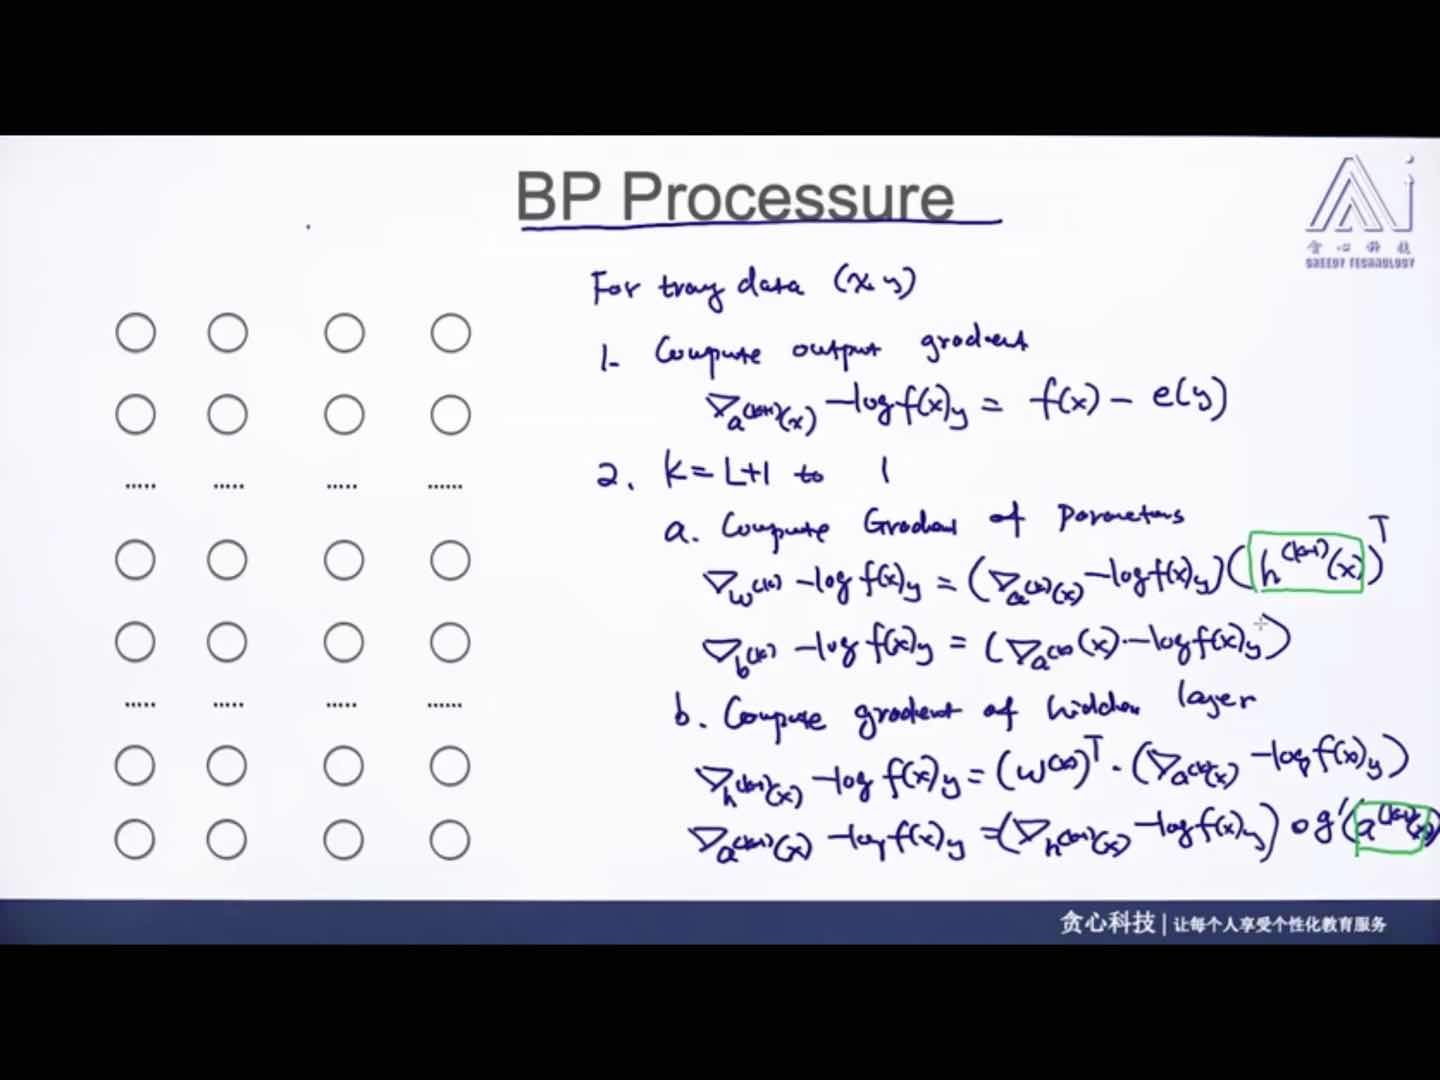 BP Processure
贪心科技
GREEDY TECHNOLOGY
For traydata (x, y)
1. Compute output gradient
∇a^(L+1)(x) -log f(x)y = f(x) - e(y)
2. k = L+1 to 1
a. Compute Gradient of Parameters
∇w^(k) -log f(x)y = (∇a^(k)(x) -log f(x)y) (h^(k-1)(x))^T
∇b^(k) -log f(x)y = (∇a^(k)(x) -log f(x)y)
b. Compute gradient of hidden layer
∇h^(k-1)(x) -log f(x)y = (w^(k))^T · (∇a^(k)(x) -log f(x)y)
∇a^(k-1)(x) -log f(x)y = (∇h^(k-1)(x) -log f(x)y) ∘ g'(a^(k-1)(x))
贪心科技 | 让每个人享受个性化教育服务